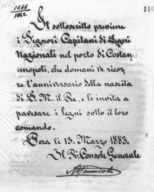 Il sottoscritto previene
i Signori Capitani di Legni
Nazionali nel porto di Costan-
tinopoli, che domani 14 ricor-
re l'anniversario della nascita
di S. M. il Re, e li invita a
pavesare i legni sotto il loro
comando.
Pera li 13 Marzo 1883.
Il R. Console Generale